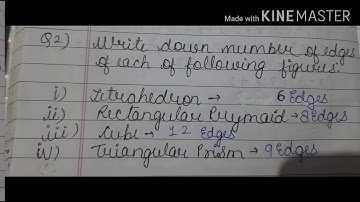 Made with KINEMASTER
Q2) Write down number of edges
of each of following figures.
i) Tetrahedron → 6 Edges
ii) Rectangular Pyramid → 8 Edges
iii) Cube → 12 Edges
iv) Triangular Prism → 9 Edges